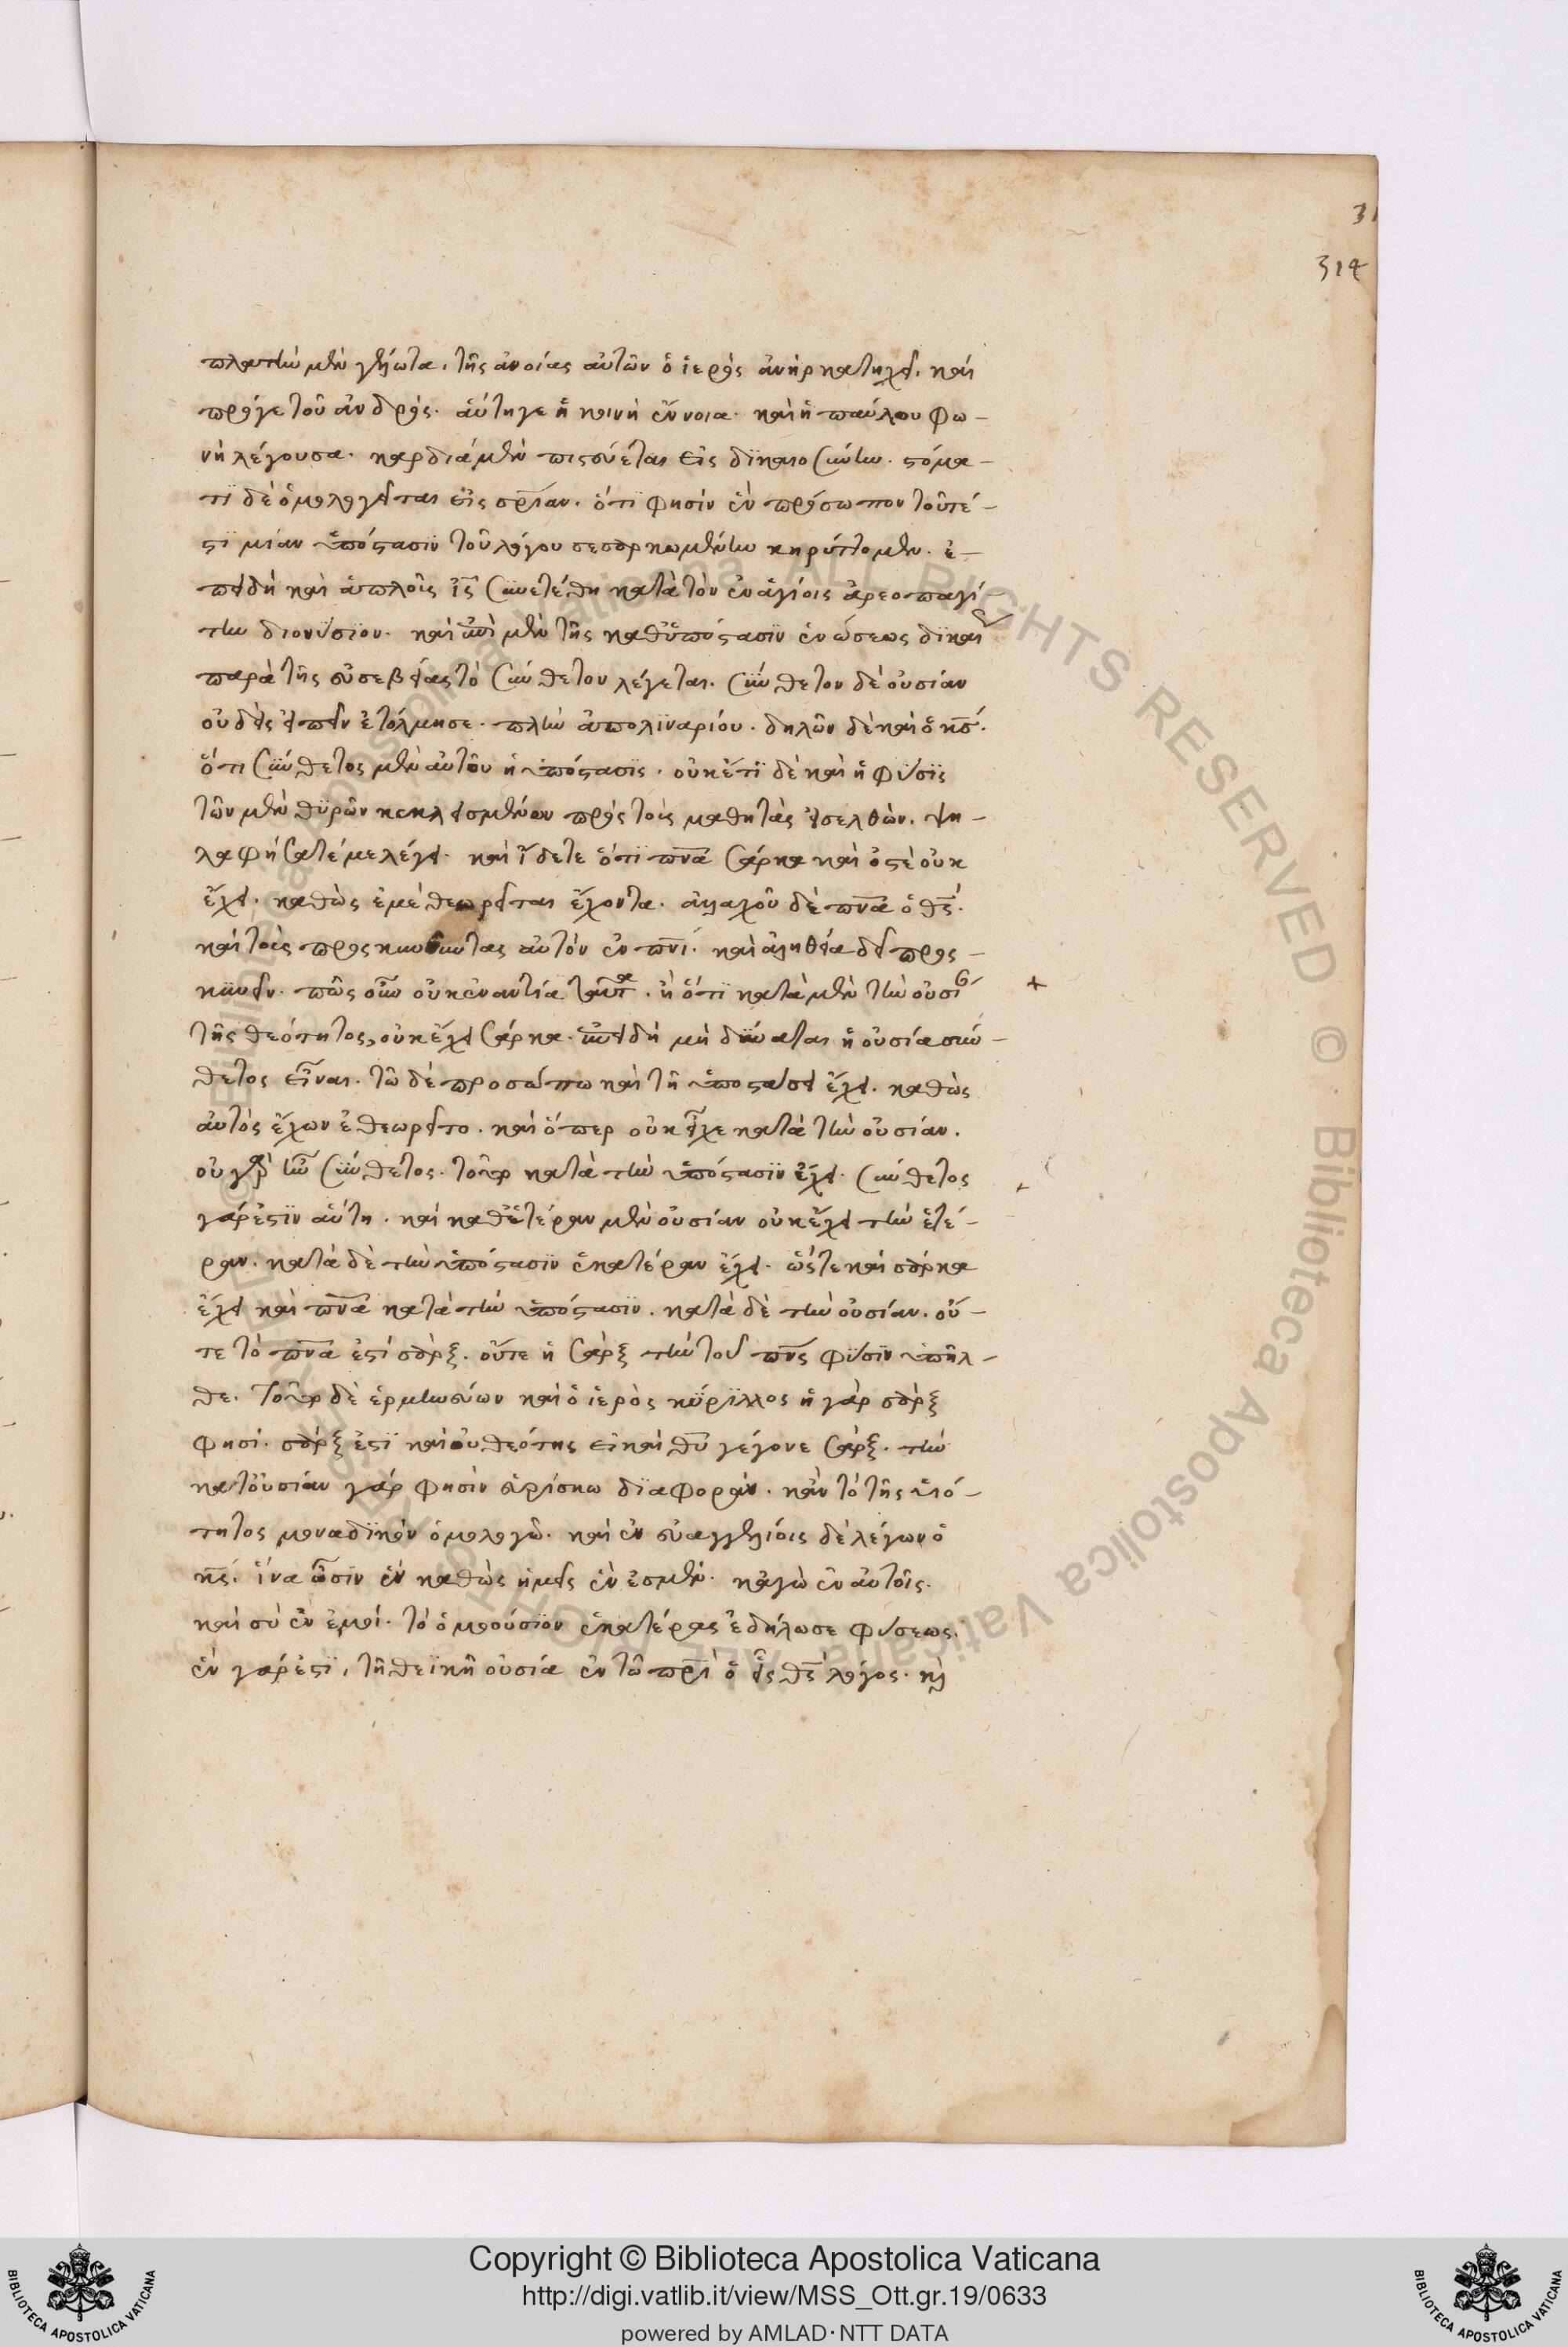 31
314
πλατὺν μὲν γέλωτα, τῆς ἀνοίας αὐτῶν ὁ ἱερὸς ἀνὴρ κατηχεῖ. καὶ
πρόγε τοῦ ἀνδρὸς. αὕτηγε ἡ κοινὴ ἔννοια. καὶ ἡ παύλου φω-
νὴ λέγουσα. καρδιά μὲν πιστεύεται εἰς δϊκαιοσύνην. στόμα-
τϊ δὲ ὁμολογεῖται εἰς σρίαν. ὅτι φησὶν ἓν πρόσωπον τουτέ-
στϊ μίαν ὑπόστασϊν τοῦ λόγου σεσαρκωμένην κηρύττομεν. ἐ-
πειδὴ καὶ ἁπλοῦς ις συνετέθη κατὰ τὸν ἐν ἁγίοις ἀρεοπαγί-
την διονύσϊον. καὶ ἐπὶ μὲν τῆς καθ ὑπόστασϊν ἑνώσεως δϊκαί
παρὰ τῆς εὐσεβείας τὸ σύνθετον λέγεται. σύνθετον δὲ οὐσίαν
οὐδεὶς εἰπεῖν ἐτόλμησε. πλὴν ἀπολϊναρίου. δηλῶν δὲ καὶ ὁ κς.
ὅτι σύνθετος μὲν αὐτοῦ ἡ ὑπόστασϊς. οὐκέτϊ δὲ καὶ ἡ φύσϊς
τῶν μὲν θϋρῶν κεκλεισμένων πρὸς τοὺς μαθητὰς εἰσελθὼν. ψη-
λαφήσατέ με λέγει. καὶ ἴδετε ὅτϊ πνα σάρκα καὶ ὀστέ οὐκ
ἔχει. καθὼς ἐμὲ θεωρεῖται ἔχοντα. ἀλλαχοῦ δὲ πνα ὁ θς.
καὶ τοὺς προσκυνοῦντας αὐτὸν ἐν πνι. καὶ ἀληθεία δεῖ προς-
κυνεῖν. πῶς οὖν οὐκ ἐναντία ταῦτα. ἢ ὅτϊ κατὰ μὲν τὴν οὐσί
τῆς θεότητος, οὐκ ἔχει σάρκα. ἐπειδὴ μὴ δύναται ἡ οὐσία σύν-
θετος εἶναι. τῶ δὲ προσώπω καὶ τῆ ὑποστάσει ἔχει. καθὼς
αὐτὸς ἔχων ἐθεωρεῖτο. καὶ ὅπερ οὐκ εἶχε κατὰ τὴν οὐσίαν.
οὐ γὰρ ἦν σύνθετος. τοῦτο κατὰ τὴν ὑπόστασϊν ἔχει. σύνθετος
γάρ ἐστϊν αὕτη. καὶ καθ ἑτέραν μὲν οὐσίαν οὐκ ἔχει τὴν ἑτέ-
ραν. κατὰ δὲ τὴν ὑπόστασϊν ἑκατέραν ἔχει. ὥστε καὶ σάρκα
ἔχει καὶ πνα κατὰ τὴν ὑπόστασϊν. κατὰ δὲ τὴν οὐσίαν. οὔ-
τε τὸ πνα ἐστὶ σὰρξ. οὔτε ἡ σὰρξ τὴν τοῦ πνς φύσϊν ὑπῆλ-
θε. τοῦτο δὲ ἑρμηνεύων καὶ ὁ ἱερὸς κύρϊλλος ἡ γὰρ σὰρξ
φησί. σὰρξ ἐστϊ καὶ οὐ θεότης εἰ καὶ θυ γέγονε σὰρξ. τὴν
κατ οὐσίαν γάρ φησὶν εὑρίσκω δϊαφορὰν. κἂν τὸ τῆς υἱό-
τητος μοναδϊκὸν ὁμολογῶ. καὶ ἐν εὐαγγελίοις δὲ λέγων ὁ
κς. ἵνα ὦσϊν ἓν καθὼς ἡμεῖς ἓν ἐσμὲν. κἀγὼ ἐν αὐτοῖς.
καὶ σὺ ἐν ἐμοί. τὸ ὁμοούσϊον ἑκατέρας ἐδήλωσε φύσεως.
ἓν γάρ ἐστϊ, τῆ θεϊκῆ οὐσία ἐν τῶ πρι ὁ εἷς θς λόγος. καὶ
Copyright © Biblioteca Apostolica Vaticana
http://digi.vatlib.it/view/MSS_Ott.gr.19/0633
powered by AMLAD·NTT DATA